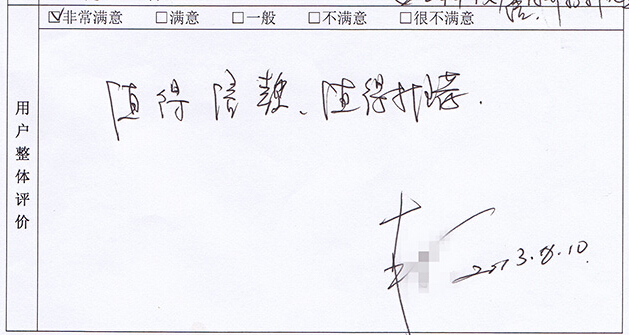 ☑非常满意 □满意 □一般 □不满意 □很不满意
用户整体评价
值得信赖、值得推荐.
2013.8.10.